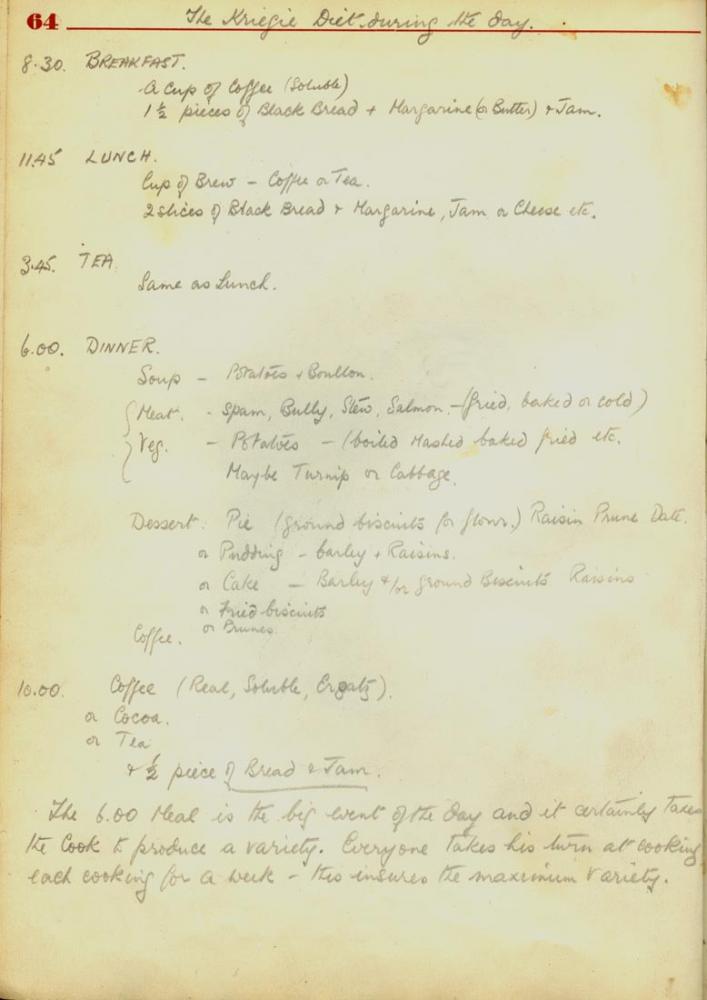 64 The Kriegie Diet during the day.
8.30. BREAKFAST.
A cup of Coffee (Soluble)
1 ½ pieces of Black Bread + Margarine (or Butter) + Jam.
11.45 LUNCH.
Cup of Brew - Coffee or Tea.
2 slices of Black Bread + Margarine, Jam or Cheese etc.
3.45. TEA.
Same as Lunch.
6.00. DINNER.
Soup - Potatoes + Boullon.
Meat. - Spam, Bully, Stew, Salmon - (fried, baked or cold)
Veg. - Potatoes - (boiled Mashed baked fried etc.
Maybe Turnip or Cabbage.
Dessert: Pie (ground biscuits for flour.) Raisin Prune Date.
or Pudding - barley + Raisins.
or Cake - Barley &/or ground Biscuits Raisins
or Fried biscuits
or Prunes.
Coffee.
10.00. Coffee (Real, Soluble, Ersatz).
or Cocoa.
or Tea
+ ½ piece of Bread & Jam.
The 6.00 Meal is the big event of the day and it certainly takes
the Cook to produce a variety. Everyone takes his turn at cooking
each cooking for a week - this insures the maximum variety.